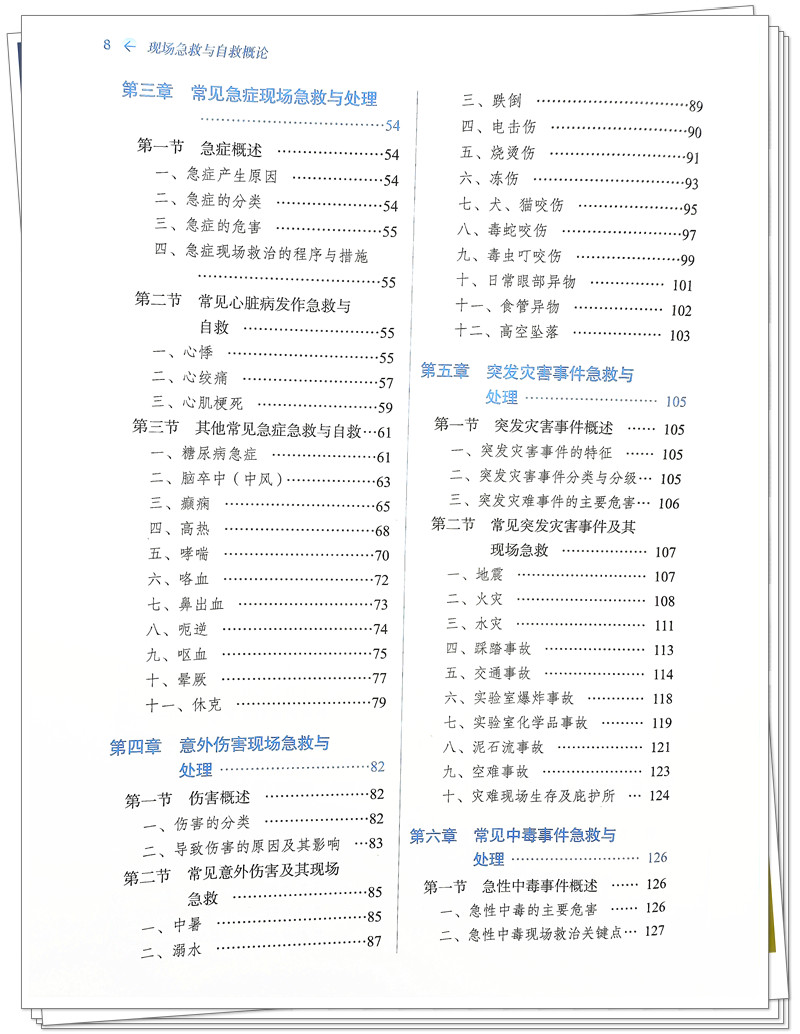 8 ← 现场急救与自救概论
第三章 常见急症现场急救与处理
……………………………54
第一节 急症概述 ………………54
一、急症产生原因 ……………54
二、急症的分类 ………………54
三、急症的危害 ………………55
四、急症现场救治的程序与措施
……………………………55
第二节 常见心脏病发作急救与
自救 ……………………55
一、心悸 ………………………55
二、心绞痛 ……………………57
三、心肌梗死 …………………59
第三节 其他常见急症急救与自救…61
一、糖尿病急症 ………………61
二、脑卒中（中风）……………63
三、癫痫 ………………………65
四、高热 ………………………68
五、哮喘 ………………………70
六、咯血 ………………………72
七、鼻出血 ……………………73
八、呃逆 ………………………74
九、呕血 ………………………75
十、晕厥 ………………………77
十一、休克 ……………………79
第四章 意外伤害现场急救与
处理 ………………………82
第一节 伤害概述 ………………82
一、伤害的分类 ………………82
二、导致伤害的原因及其影响 …83
第二节 常见意外伤害及其现场
急救 ……………………85
一、中暑 ………………………85
二、溺水 ………………………87
三、跌倒 ………………………89
四、电击伤 ……………………90
五、烧烫伤 ……………………91
六、冻伤 ………………………93
七、犬、猫咬伤 ………………95
八、毒蛇咬伤 …………………97
九、毒虫叮咬伤 ………………99
十、日常眼部异物 …………… 101
十一、食管异物 ……………… 102
十二、高空坠落 ……………… 103
第五章 突发灾害事件急救与
处理 …………………… 105
第一节 突发灾害事件概述 …… 105
一、突发灾害事件的特征 …… 105
二、突发灾害事件分类与分级… 105
三、突发灾难事件的主要危害… 106
第二节 常见突发灾害事件及其
现场急救 …………… 107
一、地震 …………………… 107
二、火灾 …………………… 108
三、水灾 …………………… 111
四、踩踏事故 ……………… 113
五、交通事故 ……………… 114
六、实验室爆炸事故 ……… 118
七、实验室化学品事故 …… 119
八、泥石流事故 …………… 121
九、空难事故 ……………… 123
十、灾难现场生存及庇护所 … 124
第六章 常见中毒事件急救与
处理 …………………… 126
第一节 急性中毒事件概述 …… 126
一、急性中毒的主要危害 …… 126
二、急性中毒现场救治关键点… 127